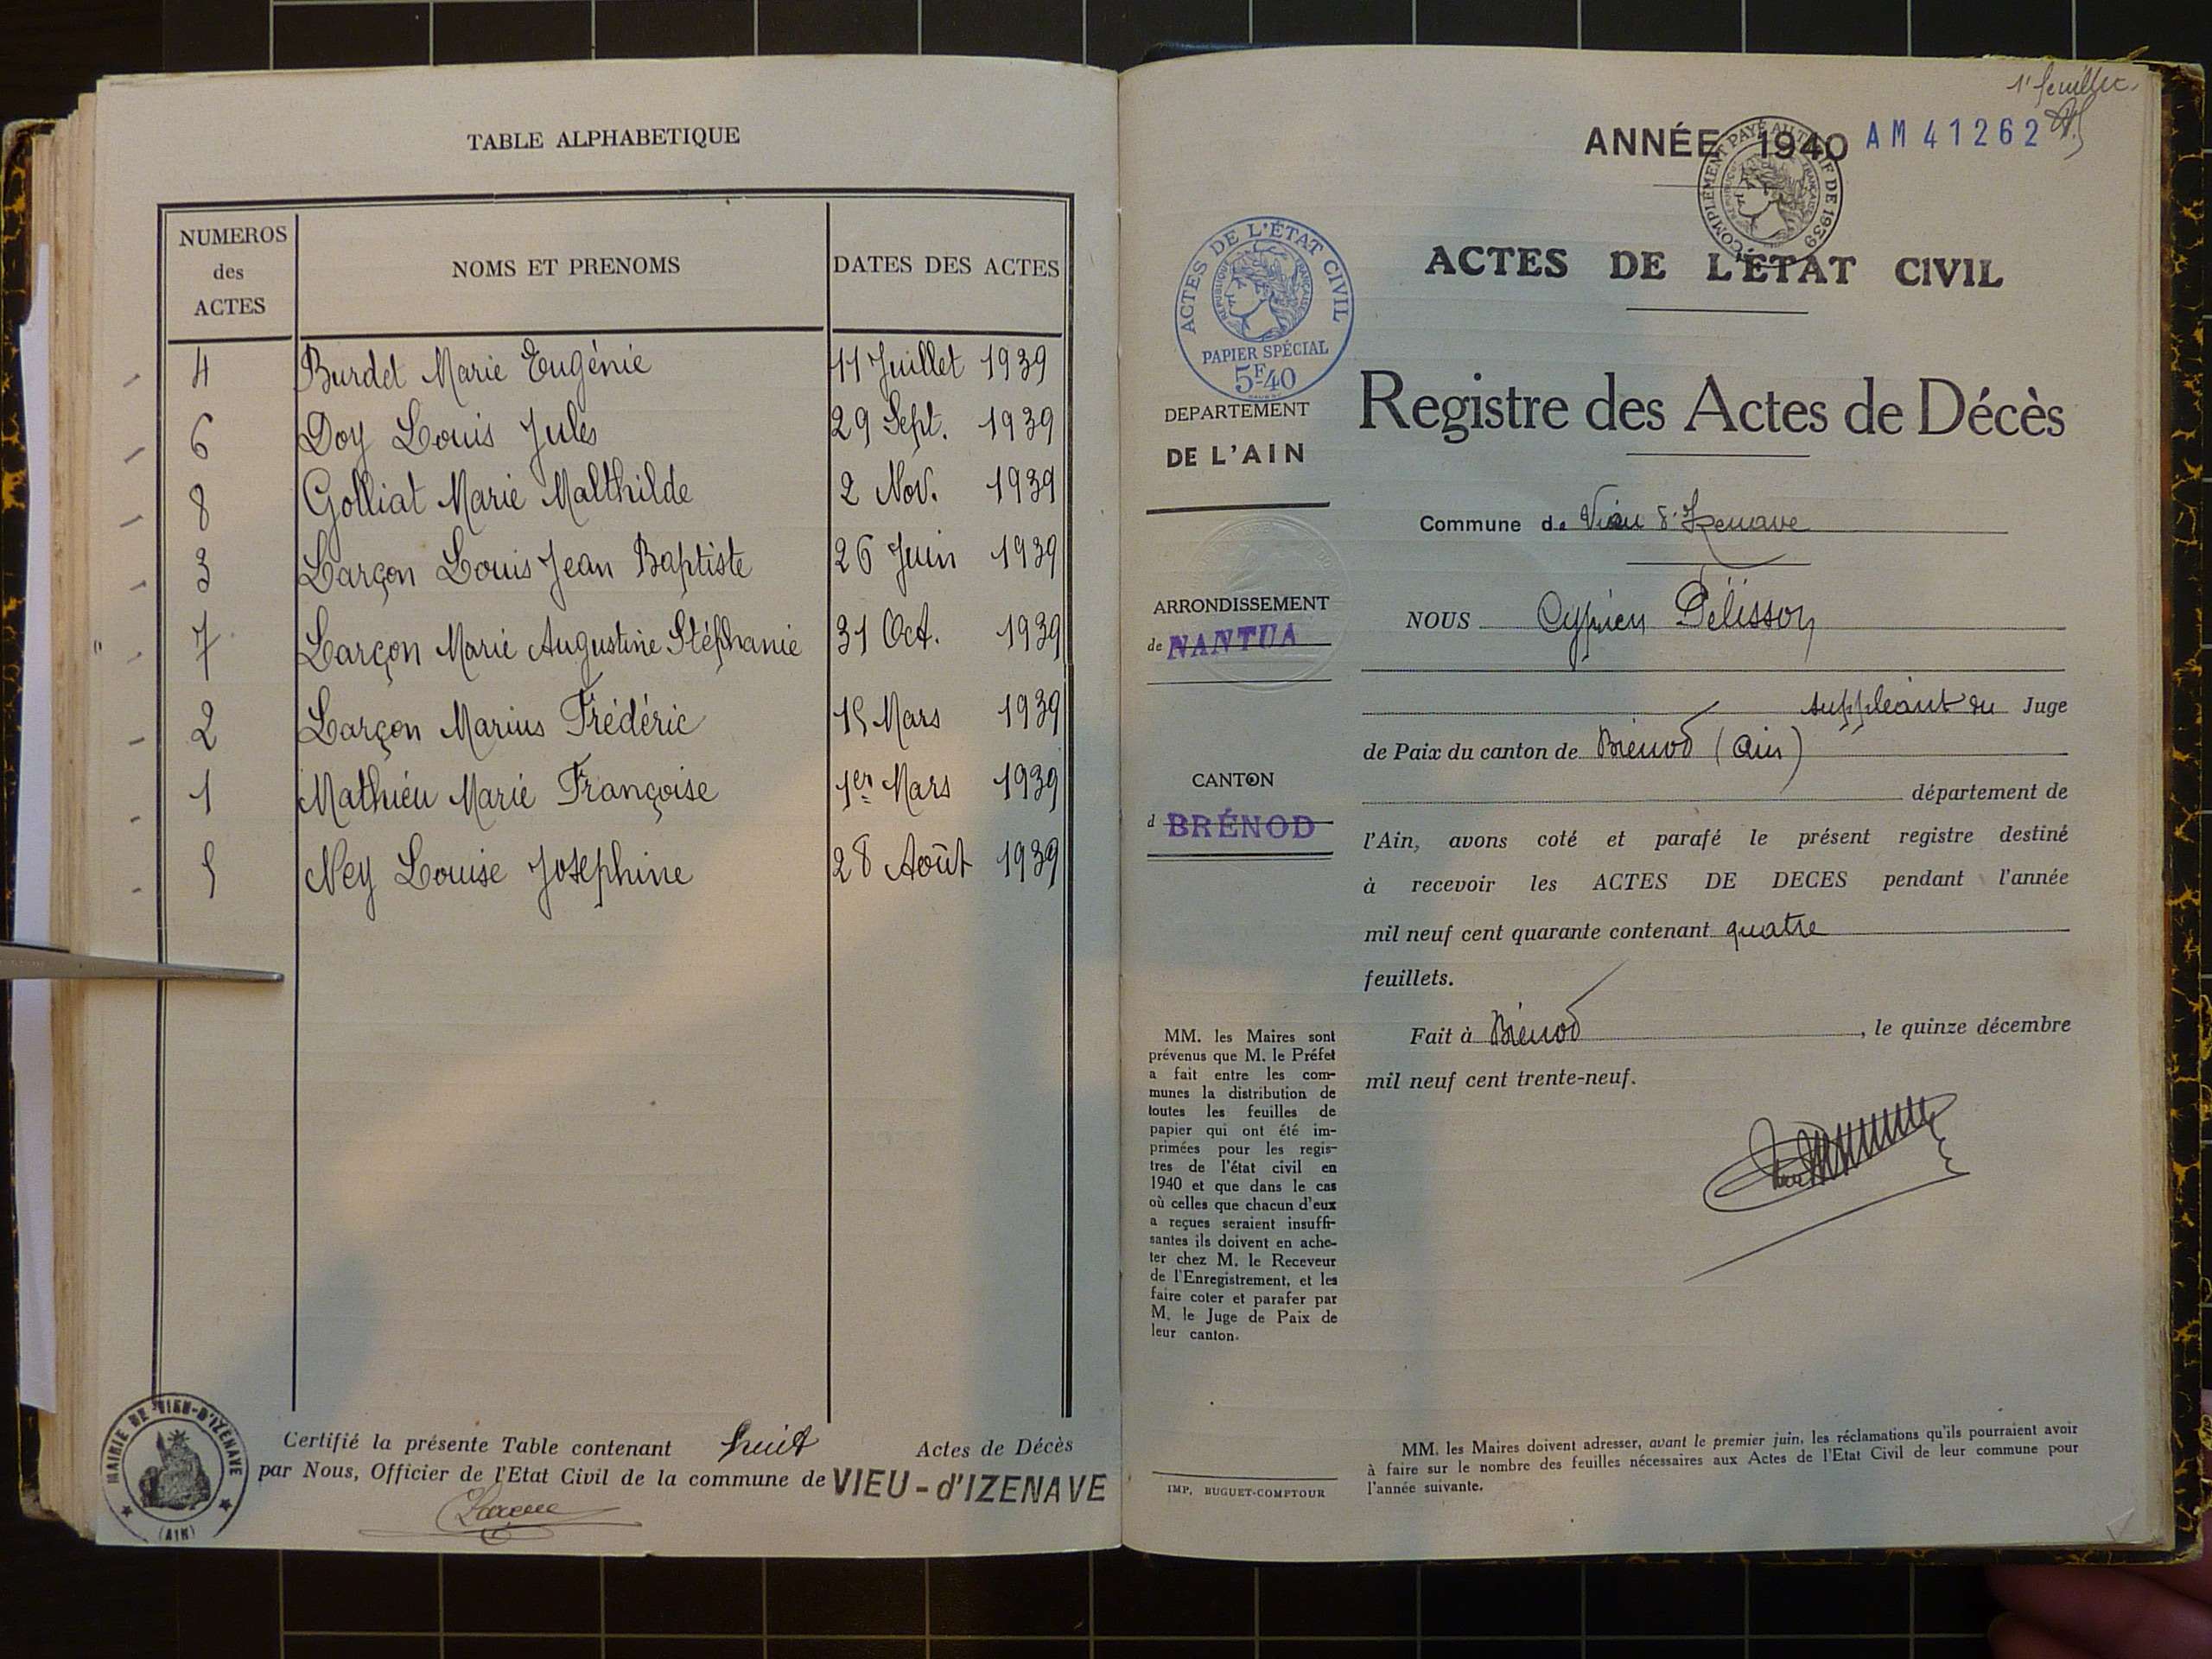 TABLE ALPHABETIQUE
NUMEROS
des
ACTES
NOMS ET PRENOMS
DATES DES ACTES
4 Burdet Marie Eugénie 11 Juillet 1939
6 Doy Louis Jules 29 Sept. 1939
8 Golliat Marie Malthilde 2 Nov. 1939
3 Larçon Louis Jean Baptiste 26 Juin 1939
7 Larçon Marie Augustine Stéphanie 31 Oct. 1939
2 Larçon Marius Frédéric 15 Mars 1939
1 Mathieu Marie Françoise 1er Mars 1939
5 Ney Louise Josephine 28 Août 1939
Certifié la présente Table contenant huit Actes de Décès
par Nous, Officier de l'Etat Civil de la commune de VIEU-d'IZENAVE
MAIRIE DE VIEU-D'IZENAVE
(AIN)
1er feuillet.
ANNÉE 1940 AM 41262
COMPLÉMENT PAYÉ AU TARIF DE 1939
RÉPUBLIQUE FRANÇAISE
ACTES DE L'ÉTAT CIVIL
ACTES DE L'ÉTAT CIVIL
RÉPUBLIQUE FRANÇAISE
PAPIER SPÉCIAL
5F40
DEPARTEMENT
DE L'AIN
ARRONDISSEMENT
de NANTUA
CANTON
d BRÉNOD
MM. les Maires sont
prévenus que M. le Préfet
a fait entre les com-
munes la distribution de
toutes les feuilles de
papier qui ont été im-
primées pour les regis-
tres de l'état civil en
1940 et que dans le cas
où celles que chacun d'eux
a reçues seraient insuffi-
santes ils doivent en ache-
ter chez M. le Receveur
de l'Enregistrement, et les
faire coter et parafer par
M. le Juge de Paix de
leur canton.
IMP. BUGUET-COMPTOUR
Registre des Actes de Décès
Commune de Vieu d'Izenave
NOUS Cyprien Pélisson
suppléant du Juge
de Paix du canton de Brénod (Ain)
département de
l'Ain, avons coté et parafé le présent registre destiné
à recevoir les ACTES DE DECES pendant l'année
mil neuf cent quarante contenant quatre
feuillets.
Fait à Brénod, le quinze décembre
mil neuf cent trente-neuf.
MM. les Maires doivent adresser, avant le premier juin, les réclamations qu'ils pourraient avoir
à faire sur le nombre des feuilles nécessaires aux Actes de l'Etat Civil de leur commune pour
l'année suivante.